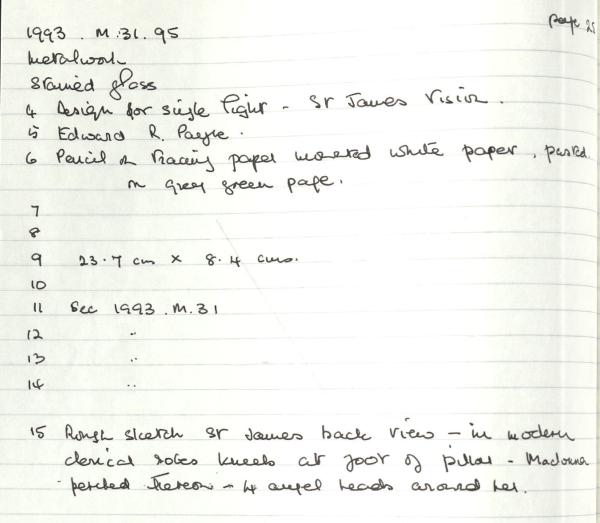 page 25
1993. M.31.95
Metalwork
Stained glass
4 Design for single light - St James Vision.
5 Edward R. Payne.
6 Pencil on tracing paper mounted white paper, pasted
on grey green page.
7
8
9 23.7 cm x 8.4 cms.
10
11 See 1993.M.31
12 ..
13 ..
14 ..
15 Rough sketch St James back view - in modern
clerical robes kneels at foot of pillar - Madonna
perched thereon - 4 angel heads around her.